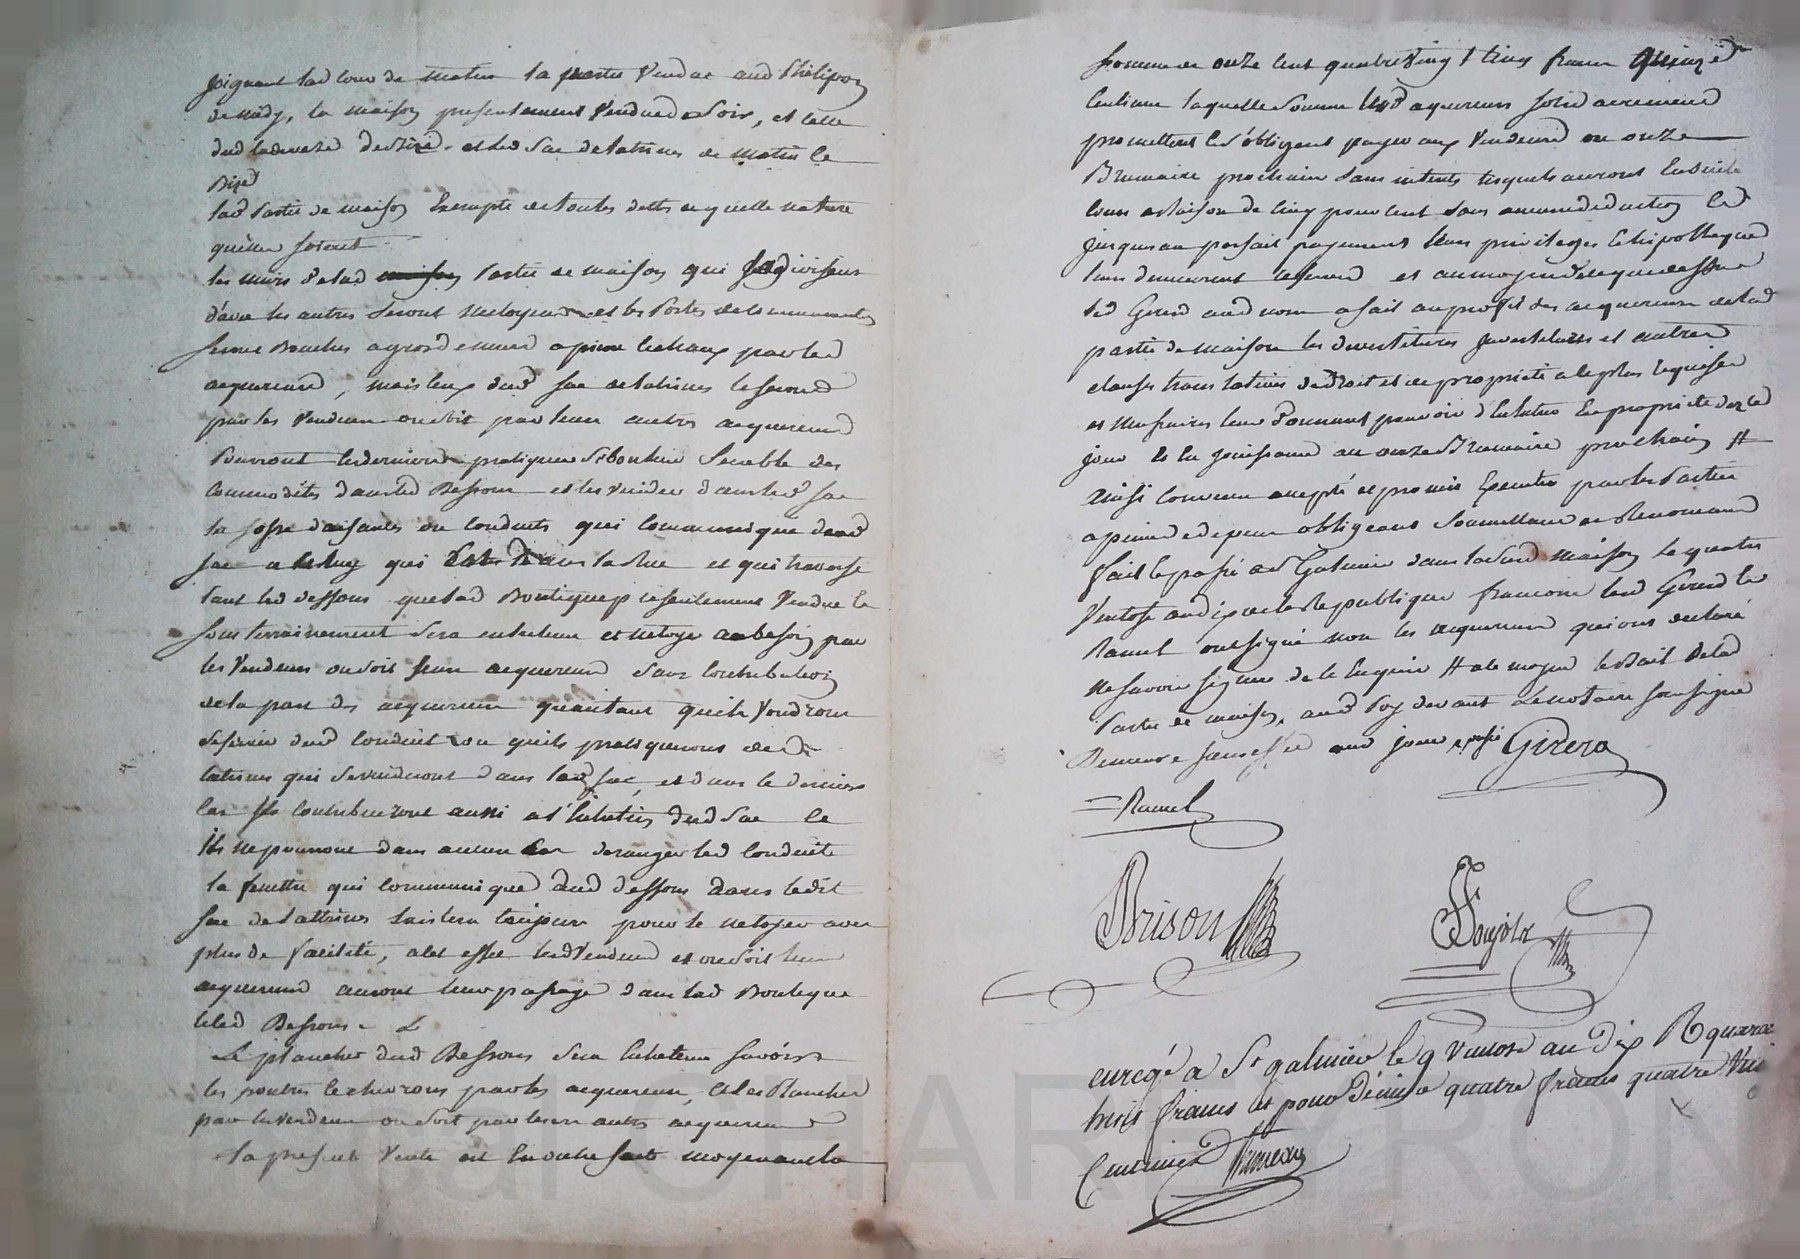 joignant lad cour de matin la partie vendue aud Philipon
de midy, la maison presentement vendue de soir, et celle
dud de bize. et led sac de latrines de matin le
bize
lad partie de maison exempte de toutes dettes de quelle nature
quelles soient
les murs de lad partie de maison qui divisent
d'avec les autres seront mitoyens et les portes de communication
seront bouchées a gros de mur a pierre et chaux par les
acquereurs, mais ceux dud sac de latrines le seront
par les vendeurs ou soit par leurs autres acquereurs
pourront ces derniers pratiquer si bon leur semble des
commodités dans led dessous et les vuider dans led sac
la fosse d'aisances ou conduits qui communique dud
sac a qui est dans la rue et qui traverse
tant les dessous que lad boutique presentement vendue le
souterrainement sera entretenu et netoyé au besoin par
les vendeurs ou soit leurs acquereurs sans contribution
de la part des acquereurs qu'autant qu'ils voudront
se servir dud conduit ou quils pratiqueront des
latrines qui se vuideront dans led sac, et dans le dernier
cas ils contribueront aussi a l'entretien dud sac et
ils ne pourront dans aucun cas deranger led conduit
la fenetre qui communique dud dessous dans ledit
sac de lattrines existera toujours pour le netoyer avec
plus de facilité, a cet effet les vendeurs et ou soit leurs
acquereurs auront leur passage dans lad boutique
et led dessous.
Le plancher dud dessous sera entretenu savoir
les poutres et chevrons par les acquereurs, et les planches
par les vendeurs ou soit par leurs autres acquereurs
la presente vente est en outre faite moyenant la
somme de onze cent quatre vingt cinq francs quinze
centimes laquelle somme lesd acquereurs solidairement
promettent et s'obligent payer aux vendeurs au onze
Brumaire prochain sans interets lesquels auront ensuite
cours a raison de cinq pour cent sans aucune deduction et
jusques au parfait payement leurs privileges et hipotheques
leurs demeurent reservés et au moyen de ce que dessus
led Girerd aud nom a fait au profit des acquereurs de lad
partie de maison les devestitures investitures et autres
clauses translatives de droit et de propriété a le plus requises
et necessaires leur donnant pouvoir d'entrer en propriété dez ce
jour et en jouissance au onze Brumaire prochain #
ainsi convenu accepté et promis executer par les parties
a peine de depens obligeant soumettant et renonceant
fait et passé a St Galmier dans lad maison le quatre
Ventose an dix de la republique francoise led Girerd et
Ramel ont signé non les acquereurs qui ont declaré
ne savoir signer de ce enquis # a le moyen le bail de lad
partie de maison, aud devant le notaire soussigné
demeure sans effet aud jour passé Girerd
Ramel
Brison
enregé a St galmier le 9 ventose an dix R quarante
trois francs et pour Décime quatre francs quatre vingt
Centimes